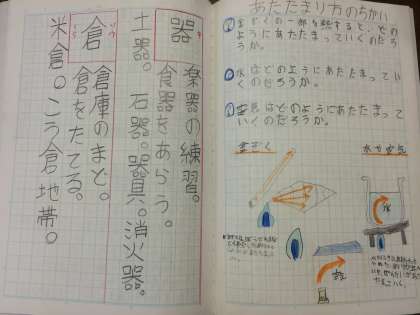 器
き
楽器の練習。
食器をあらう。
土器。石器。器具。消火器。
倉
ソウ
くら
倉庫のまど。
倉をたてる。
米倉。こう倉地帯。
あたたまり方のちがい
金ぞくの一部を熱すると、どの
ようにあたたまっていくのだろ
うか。
水はどのようにあたたまってい
くのだろうか。
空気はどのようにあたたまって
いくのだろうか。
金ぞく
水や空気
水